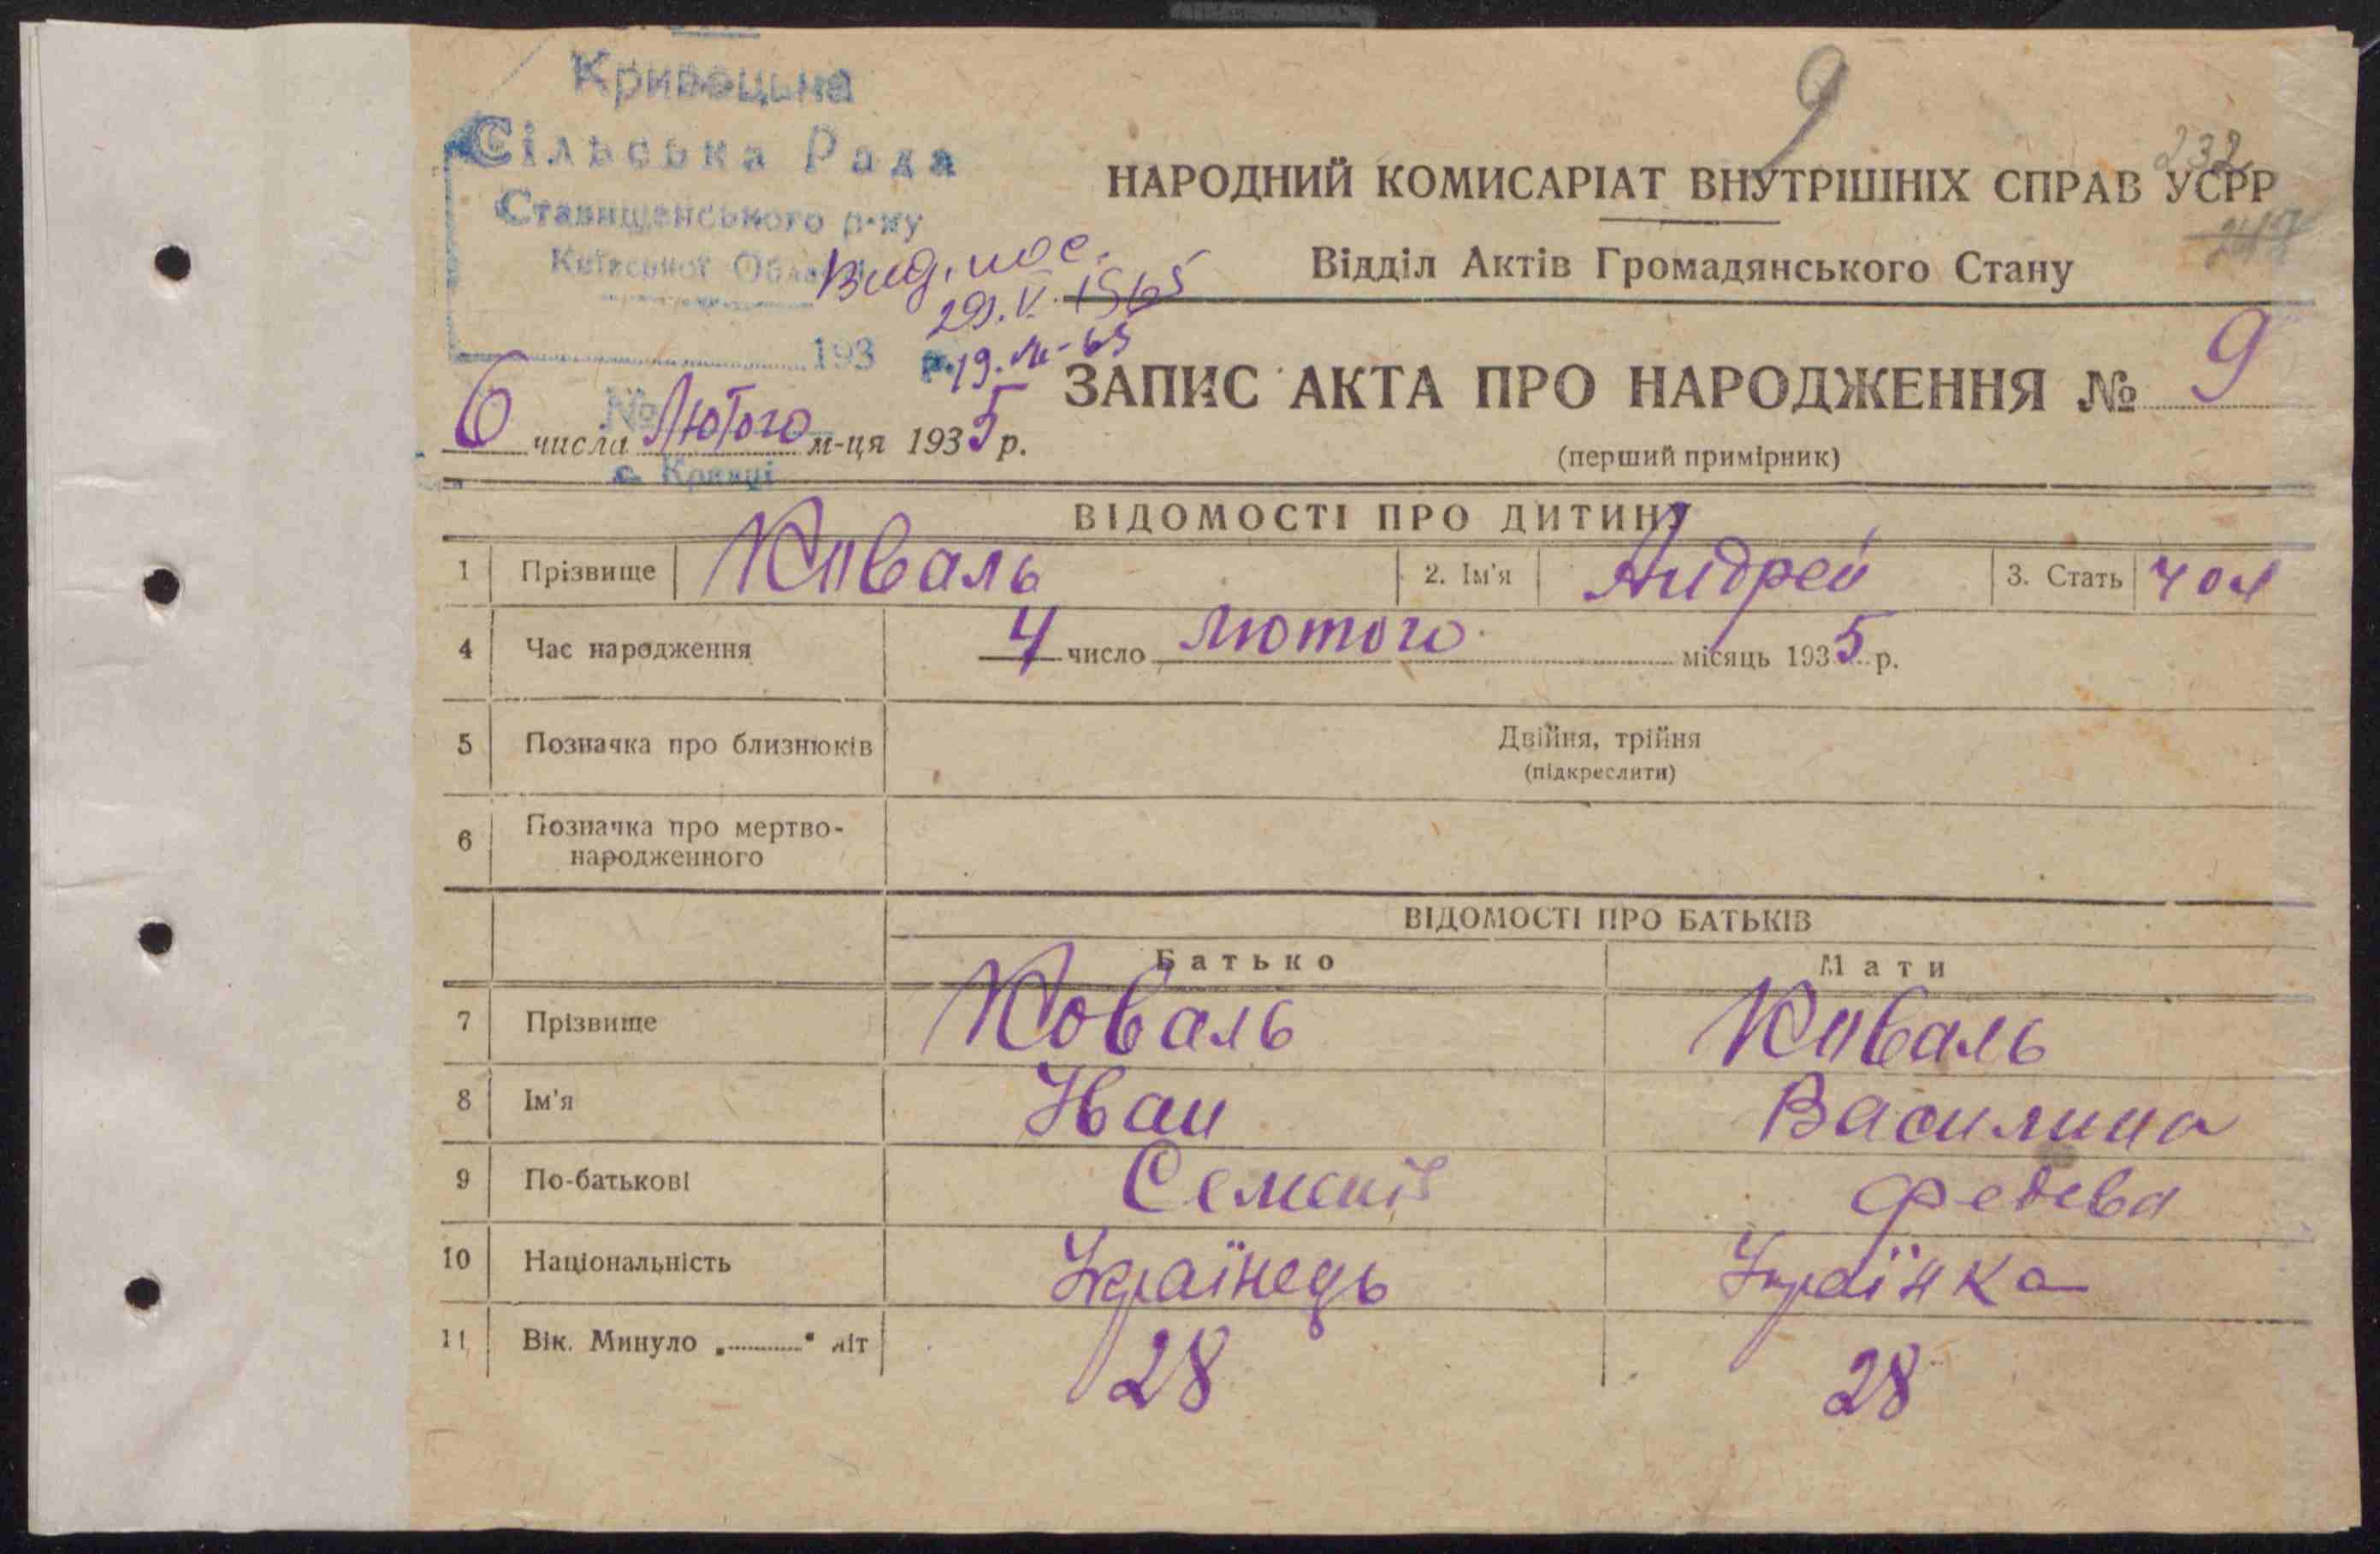 Кривецька
Сільська Рада
Ставищенського р-ну
Київської Області
Вид. пос.
29. V. 1965
193 р.
19.
№
с. Кривці
9
232
НАРОДНИЙ КОМИСАРІАТ ВНУТРІШНІХ СПРАВ УСРР
Відділ Актів Громадянського Стану
ЗАПИС АКТА ПРО НАРОДЖЕННЯ № 9
(перший примірник)
6 числа Лютого м-ця 1935 р.
ВІДОМОСТІ ПРО ДИТИНУ
1 Прізвище Коваль 2. Ім'я Андрей 3. Стать чол
4 Час народження 4 число лютого місяць 1935 р.
5 Позначка про близнюків Двійня, трійня
(підкреслити)
6 Позначка про мертво-
народженного
ВІДОМОСТІ ПРО БАТЬКІВ
Батько Мати
7 Прізвище Коваль Коваль
8 Ім'я Иван Василина
9 По-батькові Федева
10 Національність Українець Українка
11 Вік. Минуло „..........“ літ 28 28